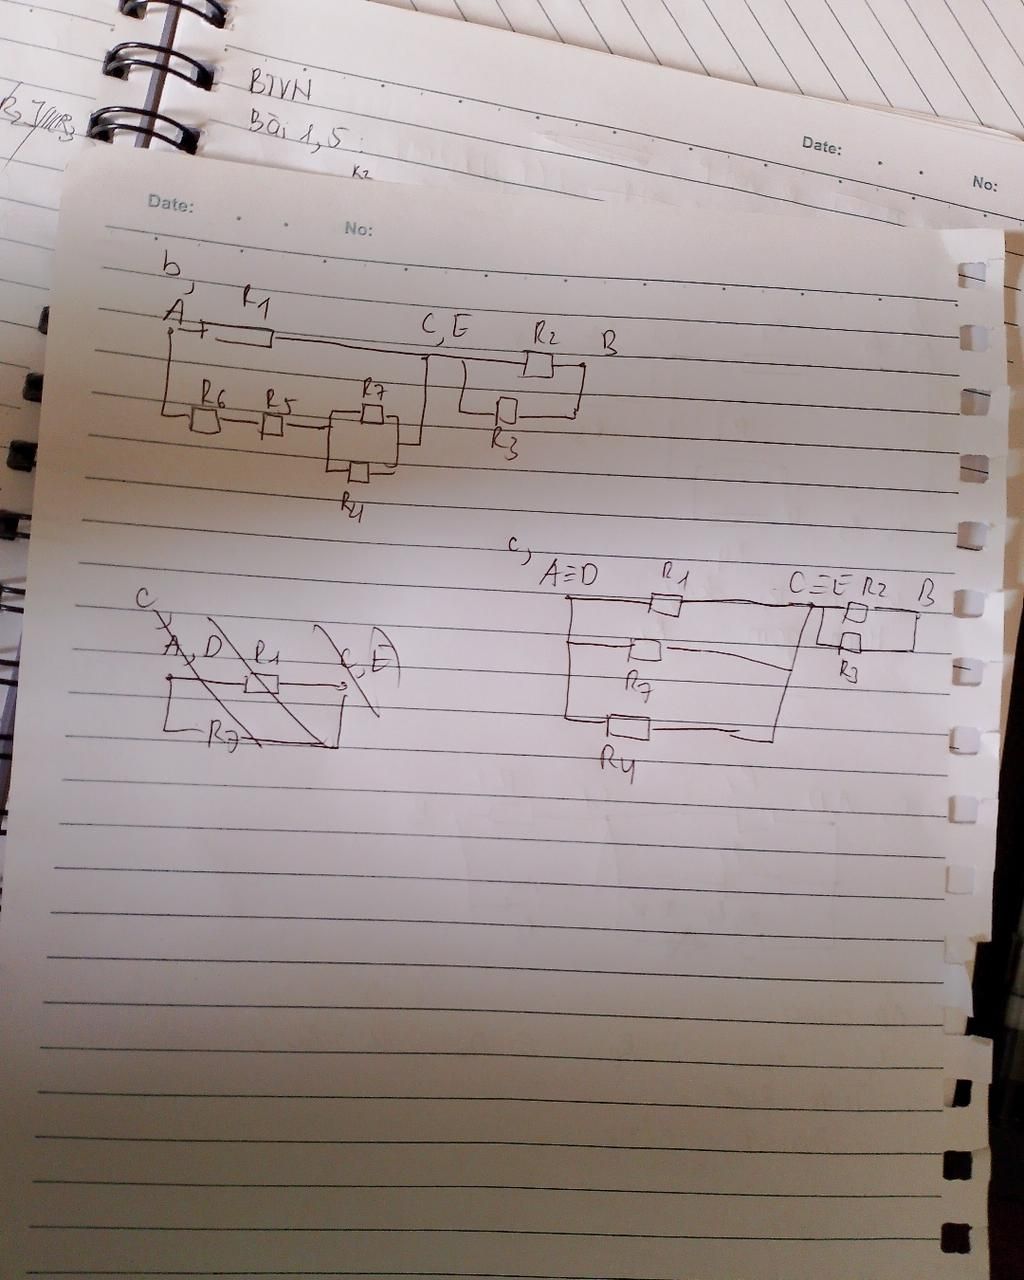 BTVN
Bài 1,5:
Date:
No:
R2
Date:
No:
b,
A R1 C, E R2 B
R6 R5 R7
R3
R4
c,
A≡D R1 C≡E R2 B
R7 R3
R4
C,
A, D R1 C, E
R7